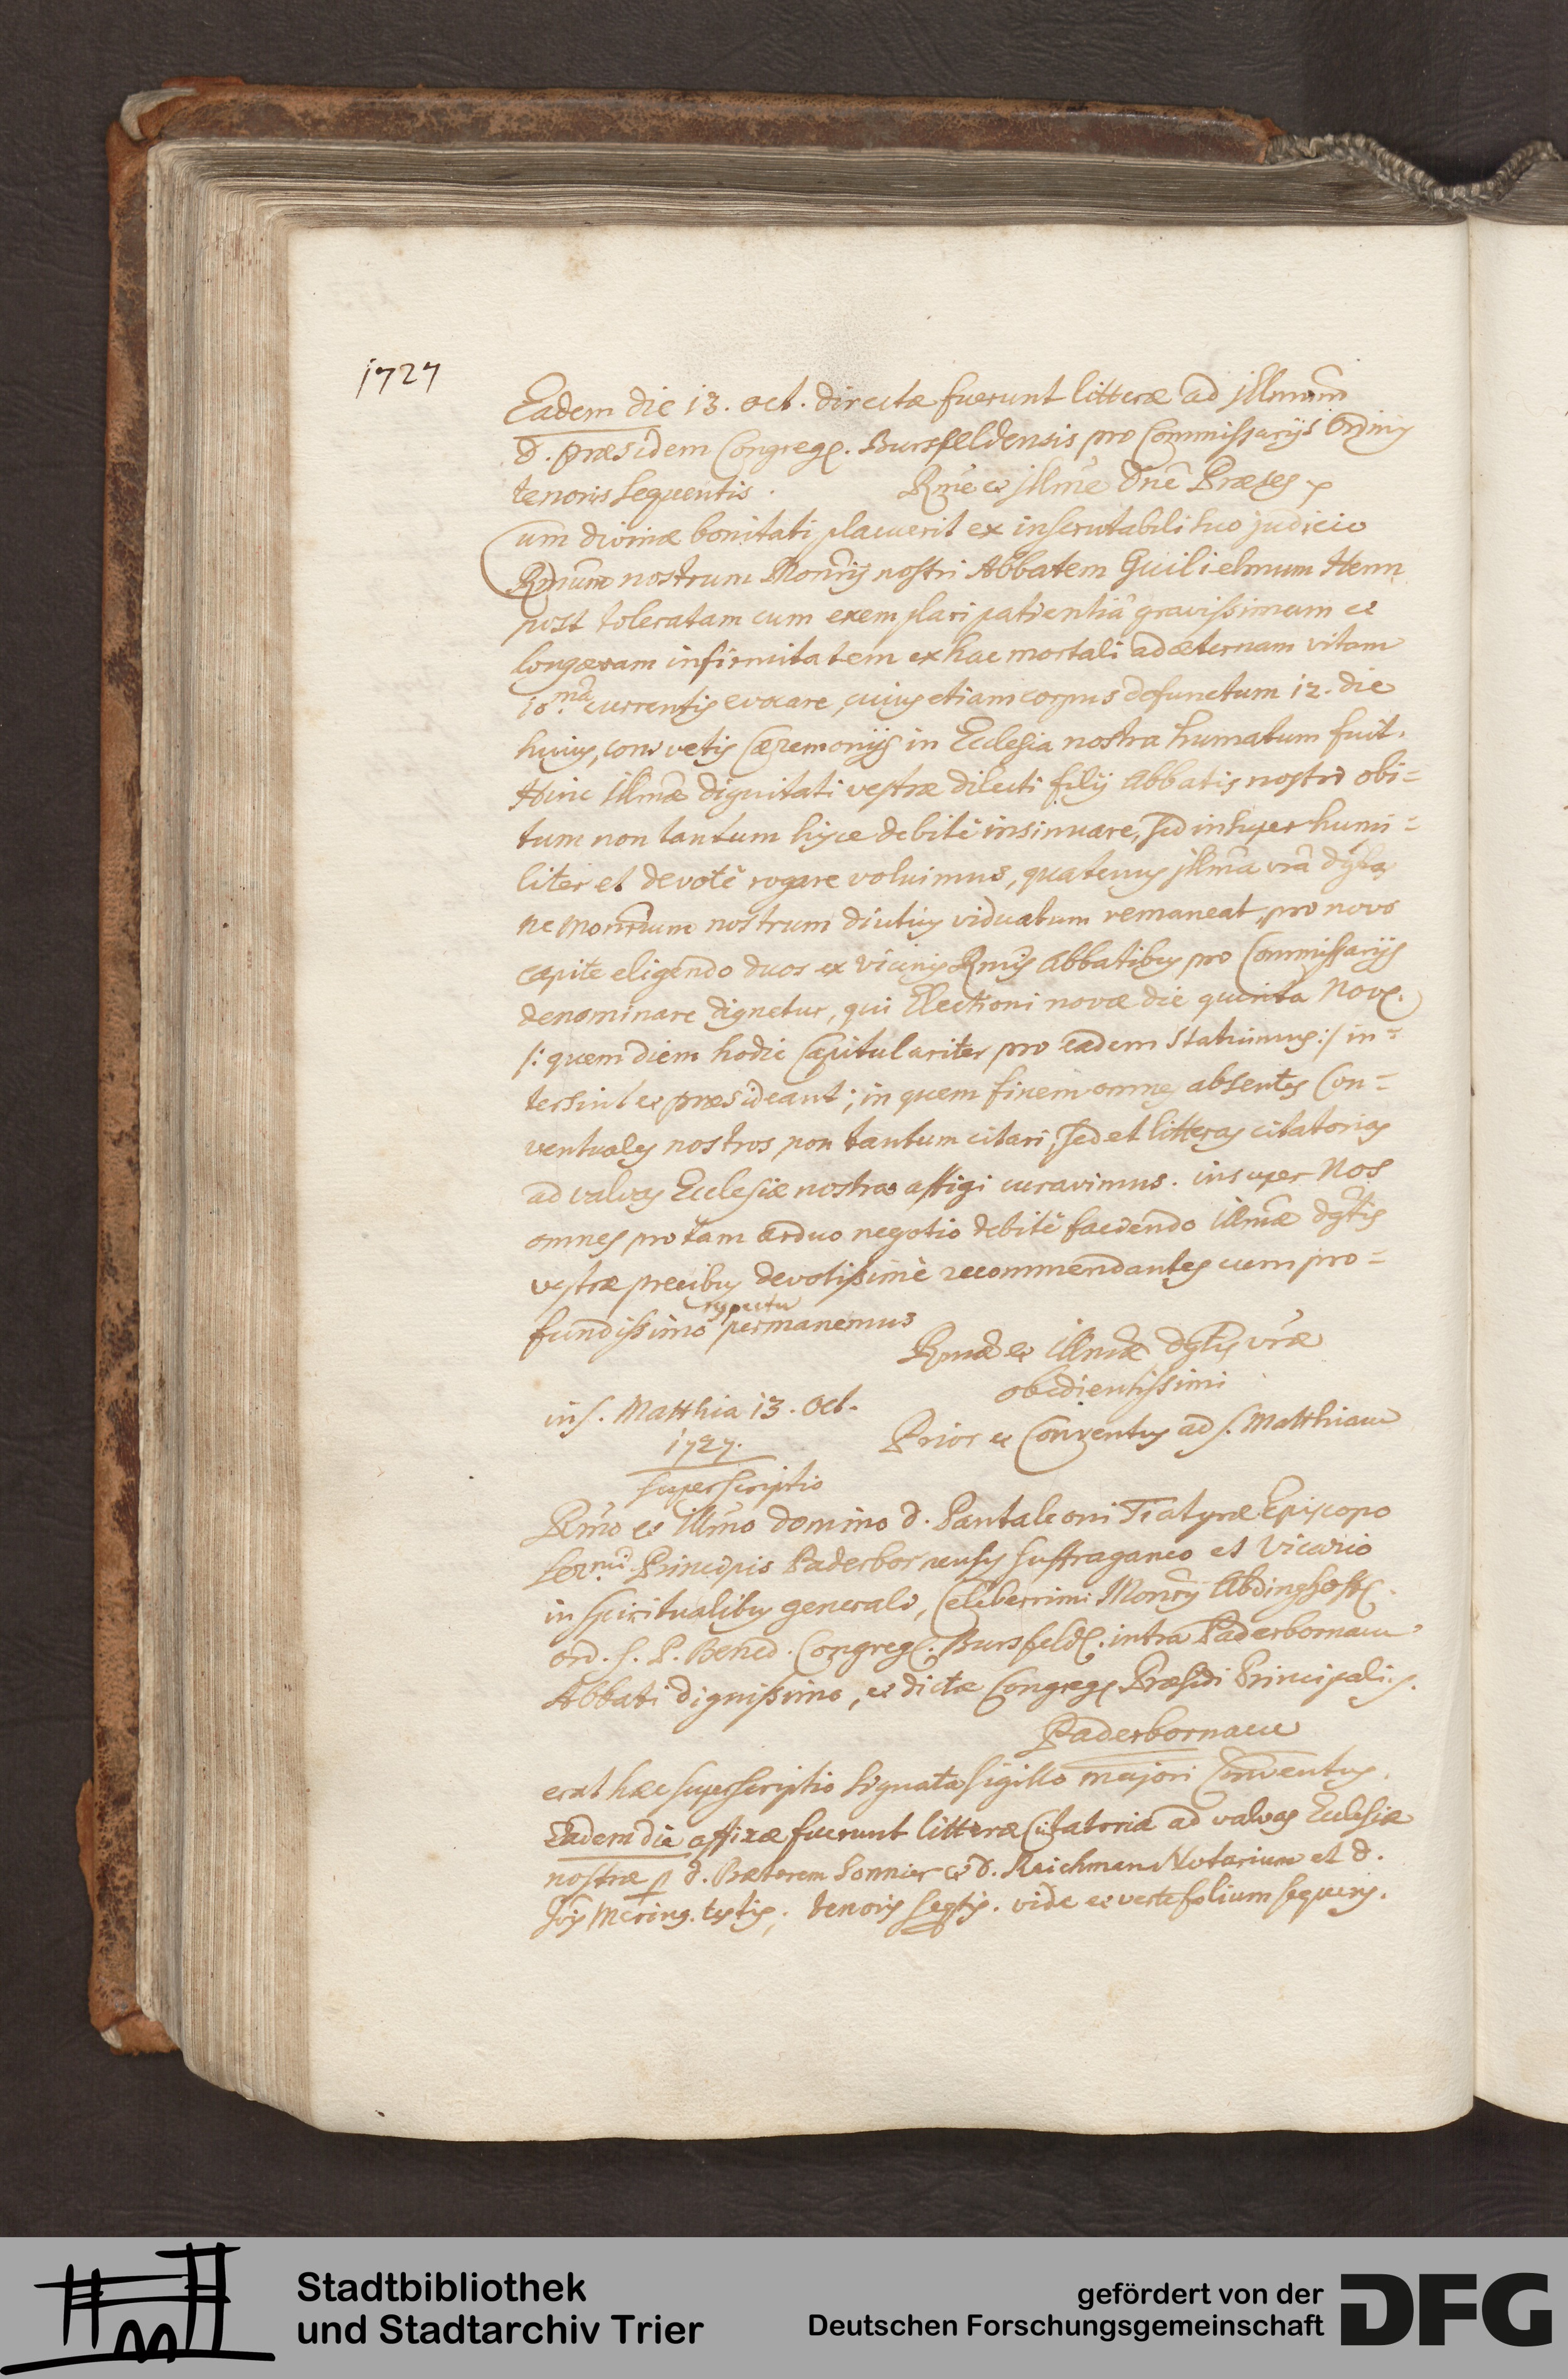 1727
Eadem die 13. oct. directæ fuerunt litteræ ad jllmum
d. præsidem Congreg. Bursfeldensis pro Commissarijs Ordinis
tenoris sequentis. Rme et jllme Dne Præses
Cum divinæ bonitati placuerit ex inscrutabili suo judicio
Rmum nostrum Monrij nostri Abbatem Guilielmum Henn
post toleratam cum exemplari patientiâ gravissimam et
longævam infirmitatem ex hac mortali ad æternam vitam
10.mâ currentis evocare, cuius etiam corpus defunctum 12. die
huius, consuetis Cæremonijs in Ecclesia nostra humatum fuit.
Hinc Illmæ dignitati vestræ dilecti filij Abbatis nostri obi=
tum non tantum hisce debitè insinuare, sed insuper humi=
liter et devotè rogare voluimus, quatenus jllma vra dgtas
ne Monrium nostrum diutius viduatum remaneat, pro novo
capite eligendo duos ex vicinis Rmis Abbatibus pro Commissarijs
denominare dignetur, qui Electioni novæ die quinta Nov.
/: quem diem hodie Capitulariter pro eadem statuimus :/ in=
tersint et præsideant; in quem finem omnes absentes Con=
ventuales nostros non tantum citari, sed et litteras citatorias
ad valvas Ecclesiæ nostræ affigi curavimus. insuper Nos
omnes pro tam arduo negotio debitè faciendo Illmæ dgtis
vestræ precibus devotissimè recommendantes cum pro=
fundissimo respectu permanemus
Rmæ et Illmæ dgtis vræ
obedientissimi
in S. Matthia 13. Oct. Prior et Conventus ad S. Matthiam
1727.
superscriptio
Rmo et Illmo Domino d. Pantaleoni Tiatyræ Episcopo
Ser.mi Principis Paderbornensis suffraganeo et Vicario
in spiritualibus generali, Celeberrimi Monrij Abdinghoff.
ord. S. P. Bened. Congreg. Bursfeld. intra Paderbornam
Abbati dignissimo, et dictæ Congreg. Præsidi Principali.
Paderbornam
erat hæc superscriptio signata sigillo majori Conventus.
Eadem die affixæ fuerunt litteræ Citatoriæ ad valvas Ecclesiæ
nostræ p d. Præterem Sonnier et d. Reichman Notarium et d.
Mering. testis; tenoris seqtis. vide et verte folium sequens.
Stadtbibliothek
und Stadtarchiv Trier
gefördert von der
Deutschen Forschungsgemeinschaft
DFG